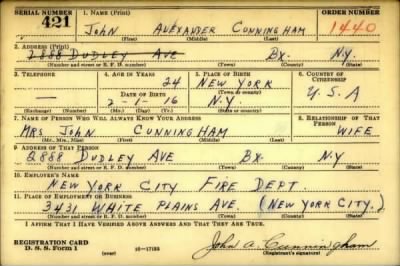 SERIAL NUMBER 1. NAME (Print) ORDER NUMBER
421 JOHN ALEXANDER CUNNINGHAM 1440
(First) (Middle) (Last)
2. ADDRESS (Print)
2888 DUDLEY AVE BX. N.Y.
(Number and street or R. F. D. number) (Town) (County) (State)
3. TELEPHONE 4. AGE IN YEARS 5. PLACE OF BIRTH 6. COUNTRY OF CITIZENSHIP
24 NEW YORK
— DATE OF BIRTH (Town or county) U.S.A
2-1-16 N.Y.
(Exchange) (Number) (Mo.) (Day) (Yr.) (State or country)
7. NAME OF PERSON WHO WILL ALWAYS KNOW YOUR ADDRESS 8. RELATIONSHIP OF THAT PERSON
MRS JOHN CUNNINGHAM WIFE
(Mr., Mrs., Miss) (First) (Middle) (Last)
9. ADDRESS OF THAT PERSON
2888 DUDLEY AVE BX. N.Y
(Number and street or R. F. D. number) (Town) (County) (State)
10. EMPLOYER'S NAME
NEW YORK CITY FIRE DEPT.
11. PLACE OF EMPLOYMENT OR BUSINESS
3431 WHITE PLAINS AVE. (NEW YORK CITY.)
(Number and street or R. F. D. number) (Town) (County) (State)
I AFFIRM THAT I HAVE VERIFIED ABOVE ANSWERS AND THAT THEY ARE TRUE.
REGISTRATION CARD John A. Cunningham
D. S. S. Form 1 (over) 16—17105 (Registrant's signature)